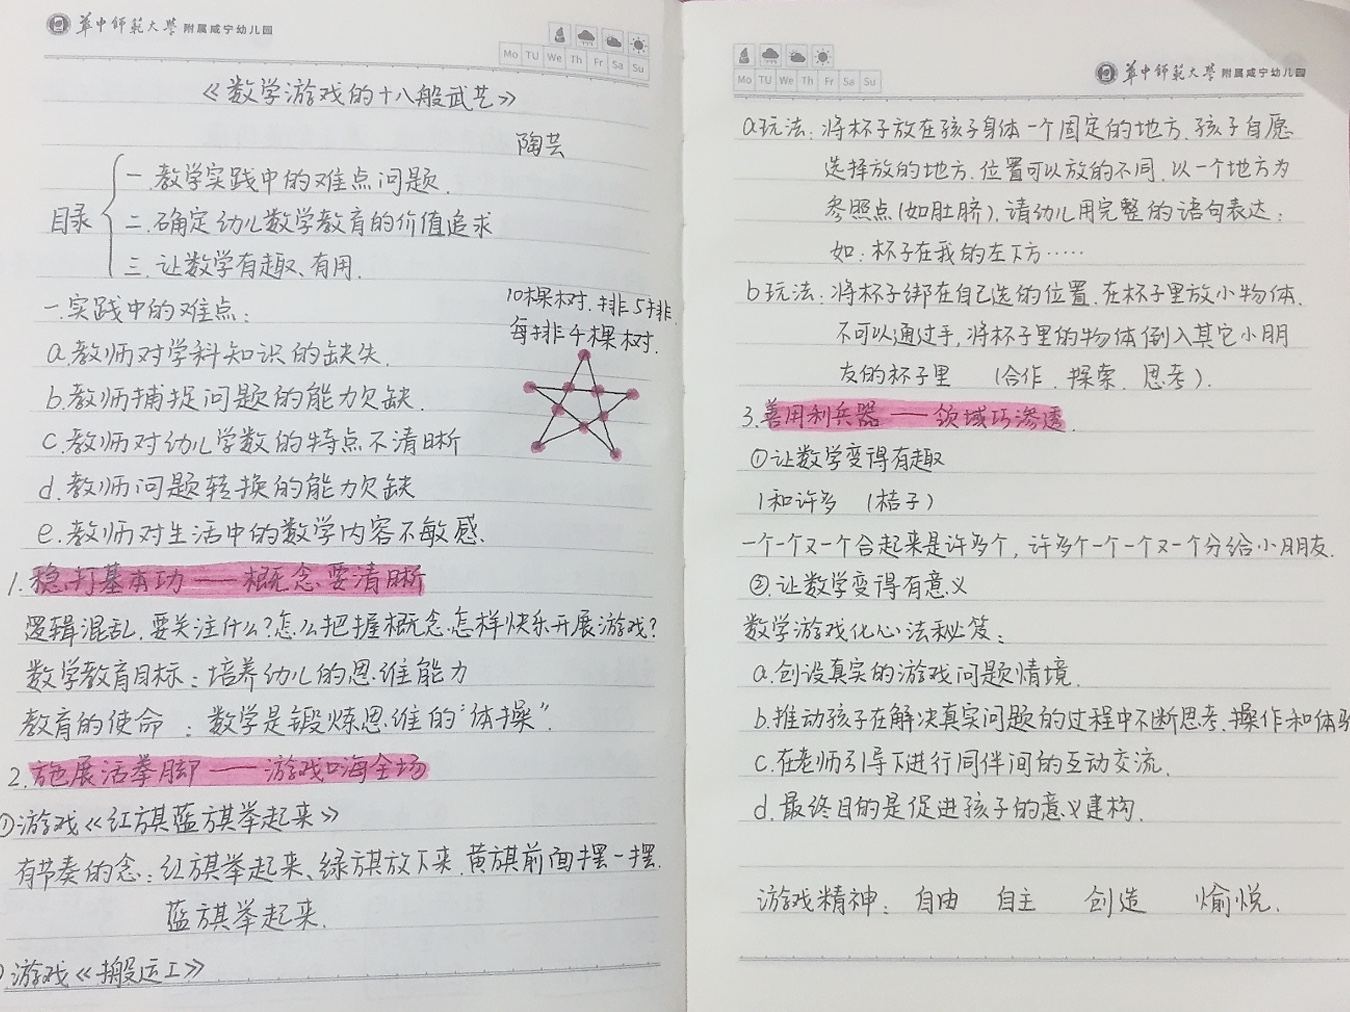 華中師範大學 附属咸宁幼儿园
Mo TU We Th Fr Sa Su
《数学游戏的十八般武艺》
陶芸
目录
一.教学实践中的难点问题.
二.确定幼儿数学教育的价值追求
三.让数学有趣、有用.
一.实践中的难点:
10棵树.排5排.
每排4棵树.
a.教师对学科知识的缺失.
b.教师捕捉问题的能力欠缺.
c.教师对幼儿学数的特点不清晰
d.教师问题转换的能力欠缺
e.教师对生活中的数学内容不敏感.
1.稳打基本功——概念要清晰
逻辑混乱.要关注什么?怎么把握概念.怎样快乐开展游戏?
数学教育目标:培养幼儿的思维能力
教育的使命:数学是锻炼思维的“体操”.
2.施展活拳脚——游戏嗨全场
①游戏《红旗蓝旗举起来》
有节奏的念:红旗举起来、绿旗放下来.黄旗前面摆一摆.
蓝旗举起来.
游戏《搬运工》
Mo TU We Th Fr Sa Su
華中師範大學 附属咸宁幼儿园
a玩法:将杯子放在孩子身体一个固定的地方.孩子自愿
选择放的地方.位置可以放的不同.以一个地方为
参照点(如肚脐).请幼儿用完整的语句表达:
如:杯子在我的左下方……
b玩法:将杯子绑在自己选的位置.在杯子里放小物体.
不可以通过手,将杯子里的物体倒入其它小朋
友的杯子里 (合作.探索.思考).
3.善用利兵器——领域巧渗透.
①让数学变得有趣
1和许多 (桔子)
一个一个又一个合起来是许多个,许多个一个一个又一个分给小朋友.
②.让数学变得有意义
数学游戏化心法秘笈:
a.创设真实的游戏问题情境.
b.推动孩子在解决真实问题的过程中不断思考.操作和体验
c.在老师引导下进行同伴间的互动交流.
d.最终目的是促进孩子的意义建构.
游戏精神: 自由 自主 创造 愉悦.